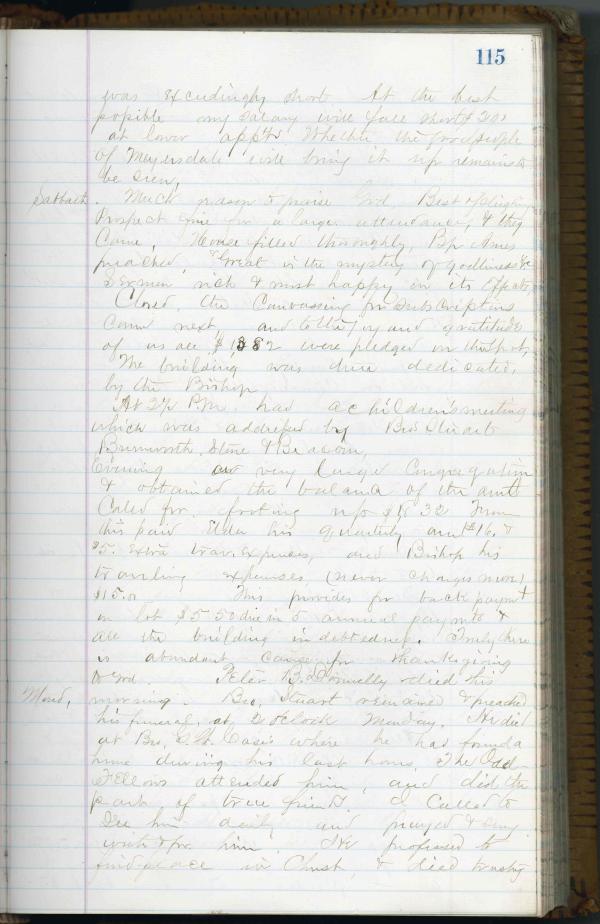 115
was exceedingly short. At the best
possible my salary will fall short $200
at lower appts. Whether the good people
of Meyersdale will bring it up remains to
be seen,
Sabbath. Much reason to praise God, Best of
Prospect fine for a large attendance, & they
Came, House filled thoroughly, Bp. Ames
preached, "Great is the mystery of godliness &c
Sermon rich & most happy in its effects,
Closed, the Canvassing for subscriptions
came next, and to the joy and gratitude
of us all $1,382 were pledged on the spot,
The building was then dedicated,
by the Bishop
At 2½ P.M. had a children's meeting
which was addressed by Bros Stuart
Burnworth, Stone & Beacom,
Evening a very large Congregation
& obtained the balance of the amt
Called for, footing up $1832 From
this paid Elder his quarterly amt $16. &
$5. extra trav. expenses, and Bishop his
traveling expenses, (never charges more)
$15.00 This provides for back payment
on lot $550 due in 5 annual payments &
all the building indebtedness. Truly there
is abundant cause for thanksgiving
to God. Peter B. Connelly died this
Mond, morning. Bro, Stuart remained & preached
his funeral, at, 2 oclock Monday. He died
at Bro, where he had found a
home during his last hours, The Odd
Fellows attended him, and did the
part of true friends. I Called to
see him daily and prayed & sung
with & for him. He professed to
find peace in Christ, & died trusting